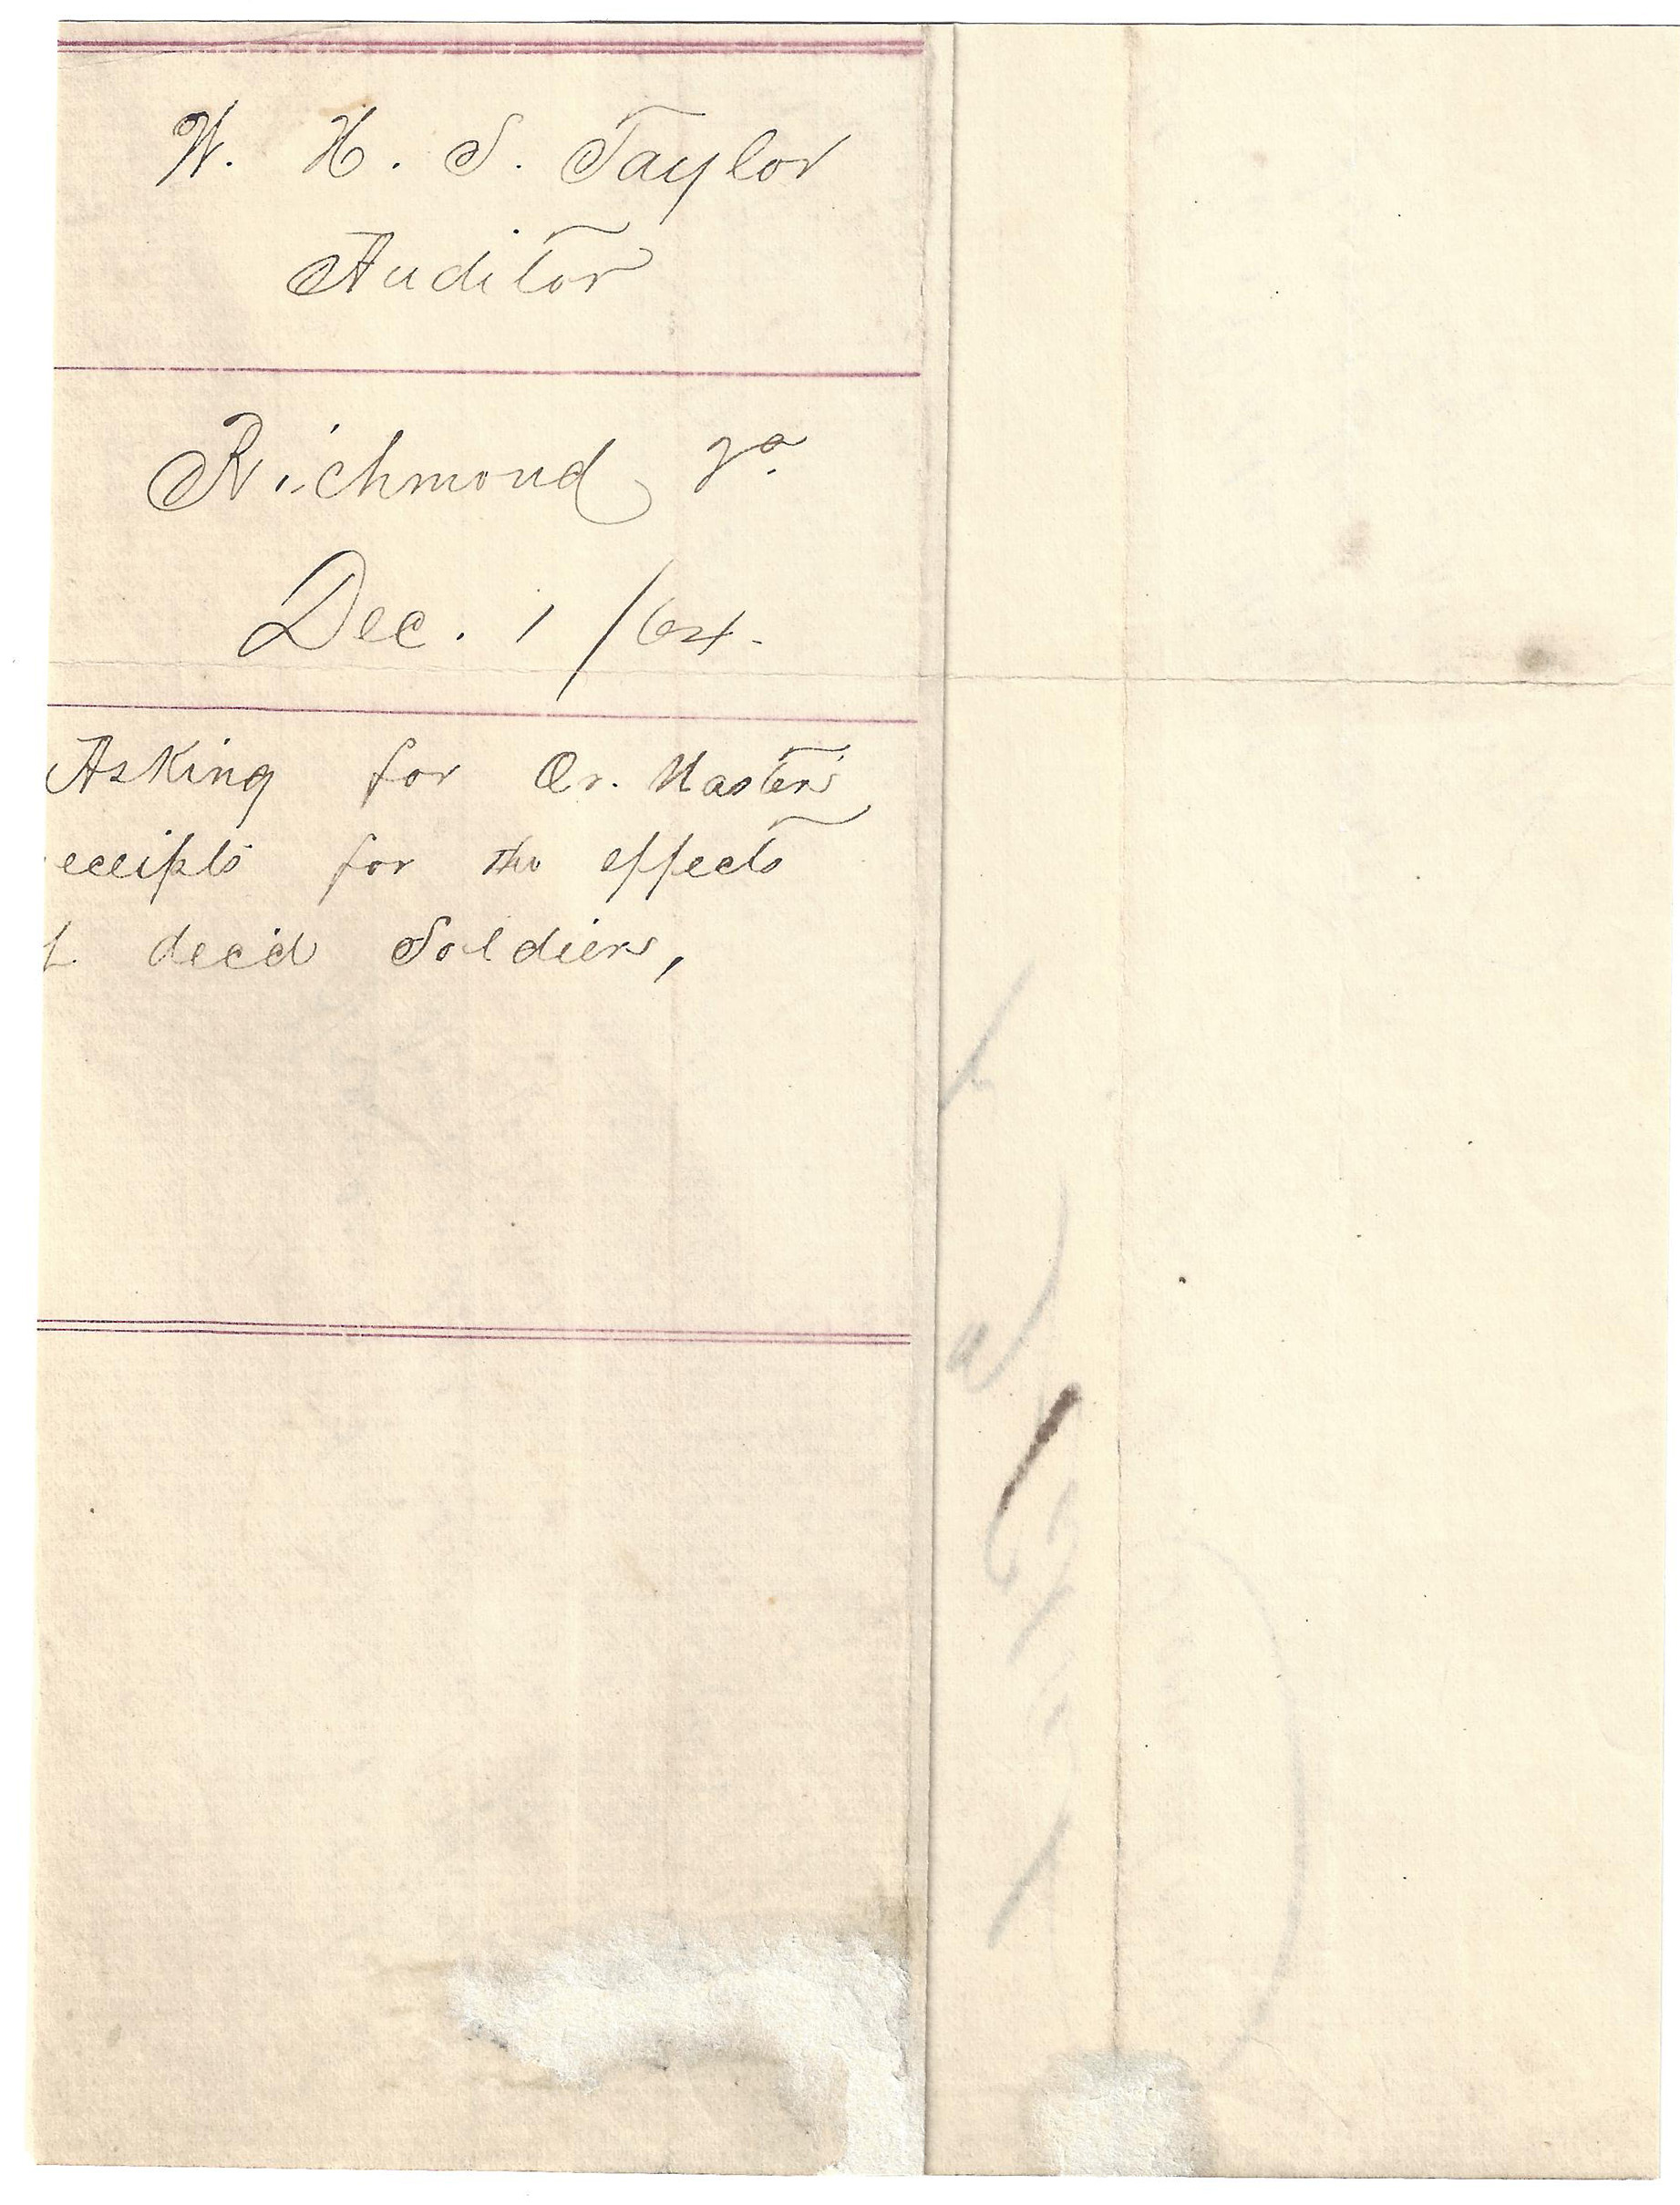 W. H. S. Taylor
Auditor
Richmond Va.
Dec. 1 /64.
Asking for Qr. Masters
eceipts for the effects
f dec'd Soldiers,